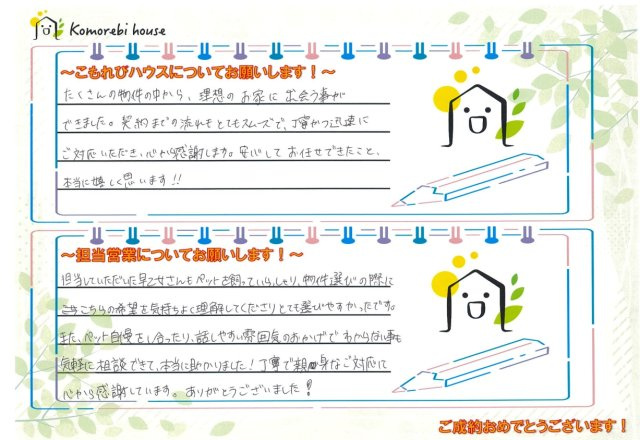 Komorebi house
～こもれびハウスについてお願いします！～
たくさんの物件の中から、理想のお家に出会う事が
できました。契約までの流れもとてもスムーズで、丁寧かつ迅速に
ご対応いただき、心から感謝します。安心してお任せできたこと、
本当に嬉しく思います!!
～担当営業についてお願いします！～
担当していただいた早乙女さんもペットを飼っていらっしゃり、物件選びの際に
こちらの希望を気持ちよく理解してくださりとても選びやすかったです。
また、ペット自慢をし合ったり、話しやすい雰囲気のおかげでわからない事も
気軽に相談できて、本当に助かりました！丁寧で親身なご対応に
心から感謝しています。ありがとうございました！
ご成約おめでとうございます！